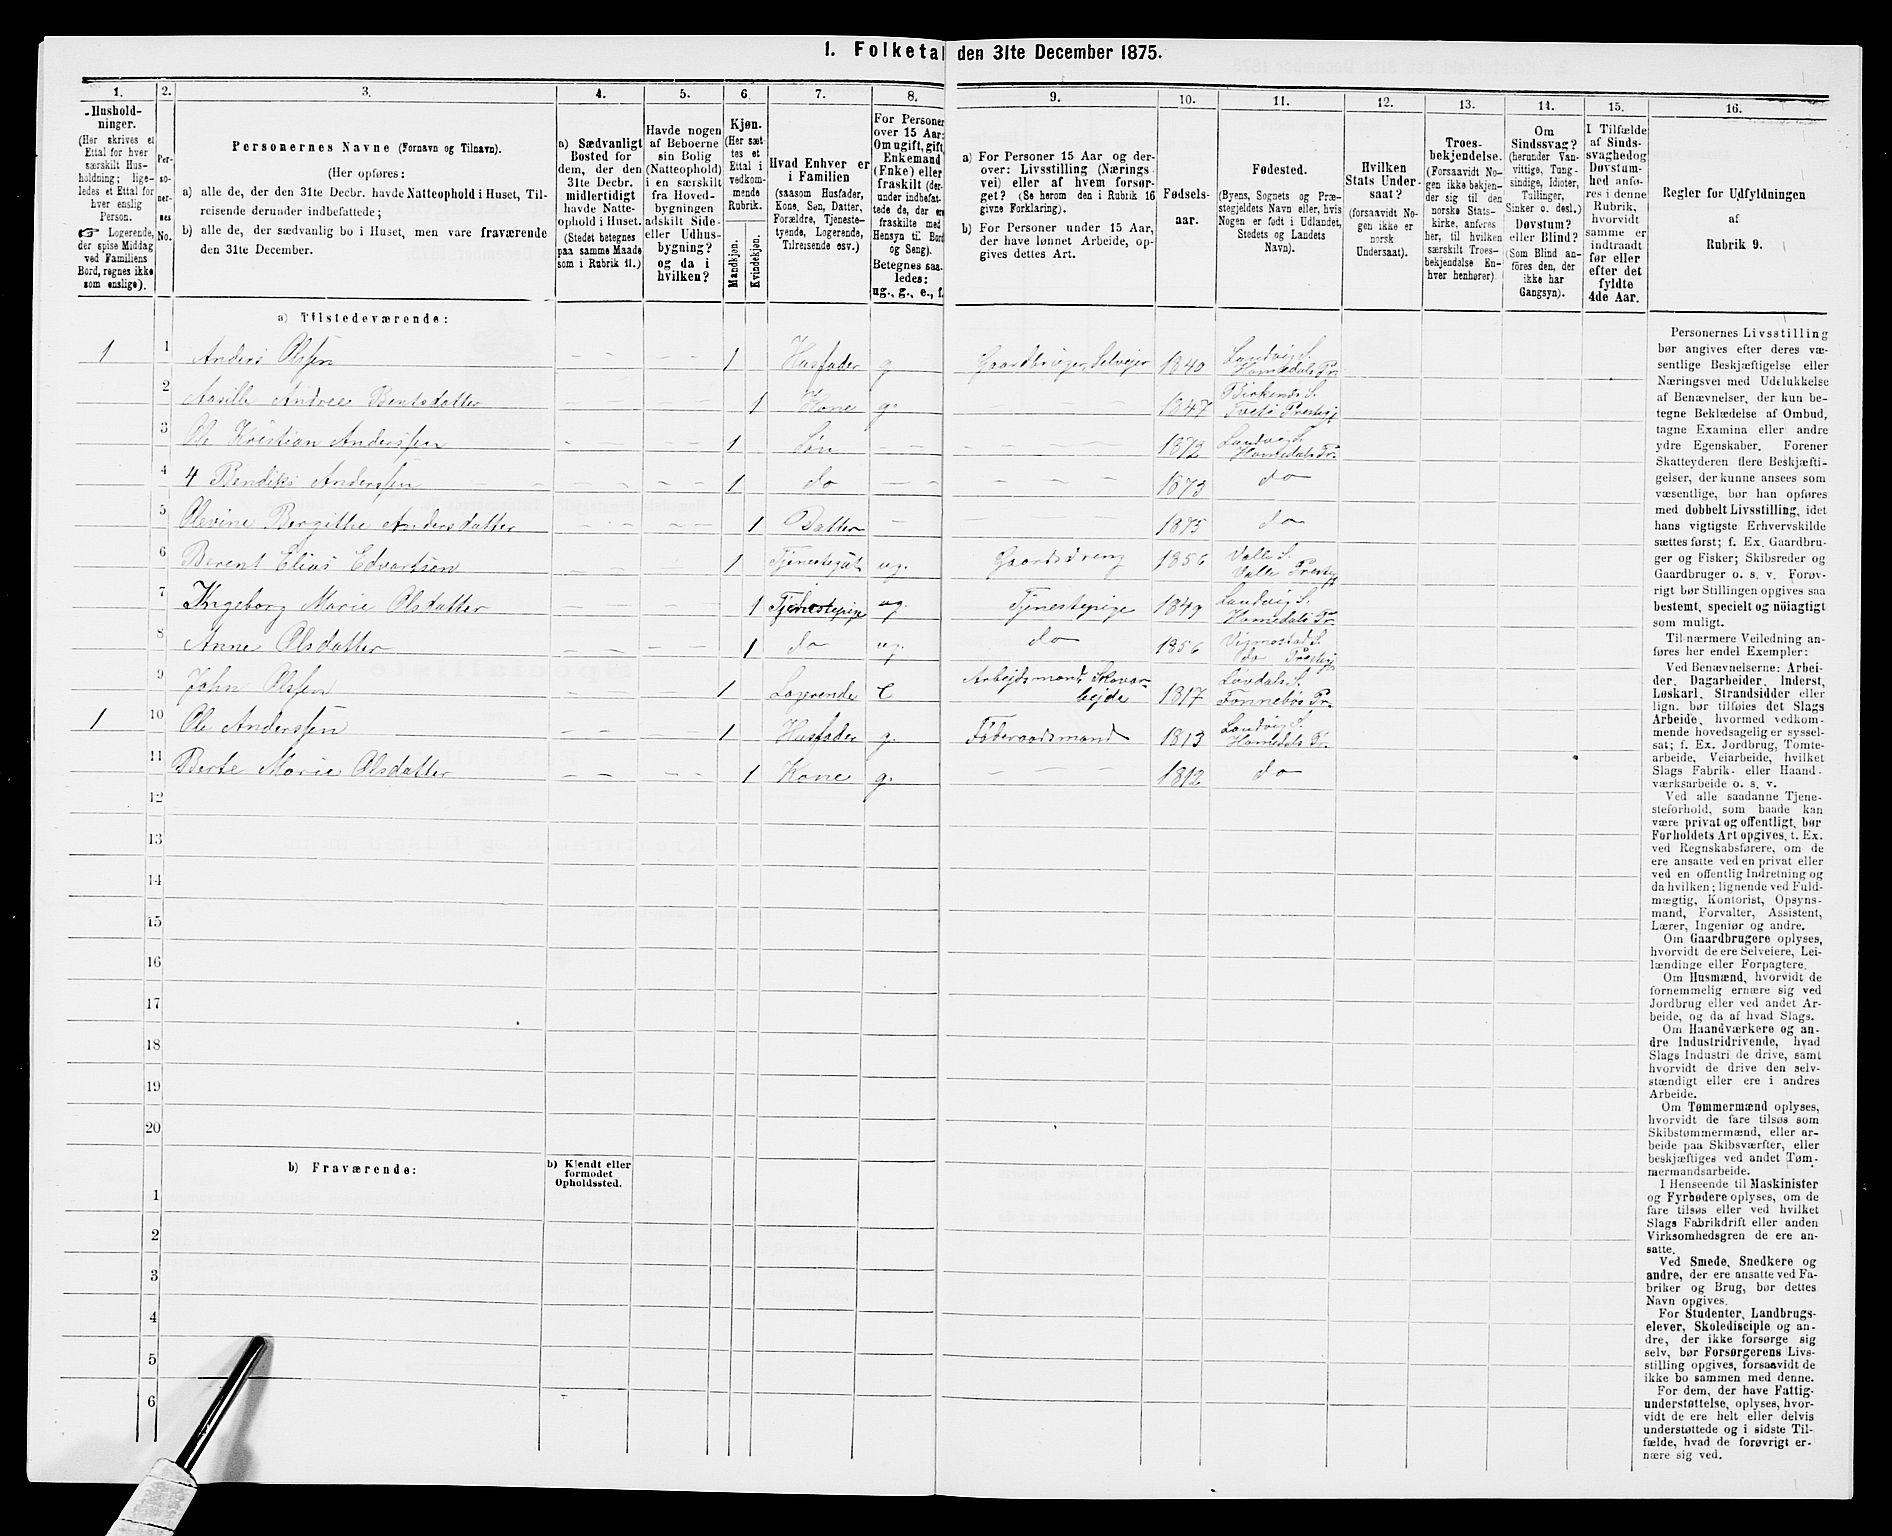 1. Folketal den 31te December 1875.
1. 2. 3. 4. 5. 6. 7. 8. 9. 10. 11. 12. 13. 14. 15. 16.
Hushold-
ninger.
(Her skrives et
Ettal for hver
særskilt Hus-
holdning; lige-
ledes et Ettal for
hver enslig
Person.
☞ Logerende,
der spise Middag
ved Familiens
Bord, regnes ikke
som enslige).
Per-
so-
ner-
nes
No.
Personernes Navne (Fornavn og Tilnavn).
(Her opføres:
a) alle de, der den 31te Decbr. havde Natteophold i Huset, Til-
reisende derunder indbefattede;
b) alle de, der sædvanlig bo i Huset, men vare fraværende
den 31te December.
a) Sædvanligt
Bosted for
dem, der den
31te Decbr.
midlertidigt
havde Natte-
ophold i Huset.
(Stedet betegnes
paa samme Maade
som i Rubrik 11.)
Havde nogen
af Beboerne
sin Bolig
(Natteophold)
i en særskilt
fra Hoved-
bygningen
adskilt Side-
eller Udhus-
bygning?
og da i
hvilken?
Kjøn.
(Her sæt-
tes et
Ettal i
vedkom-
mende
Rubrik.
Mandkjøn.
Kvindekjøn.
Hvad Enhver er
i Familien
(saasom Husfader,
Kone, Søn, Datter,
Forældre, Tjeneste-
tyende, Logerende,
Tilreisende osv.)
For Personer
over 15 Aar:
Om ugift, gift,
Enkemand
(Enke) eller
fraskilt (der-
under indbefat-
tede de, der ere
fraskilte med
Hensyn til Bord
og Seng).
Betegnes saa-
ledes:
ug., g., e., f.
a) For Personer 15 Aar og der-
over: Livsstilling (Nærings-
vei) eller af hvem forsør-
get? (Se herom den i Rubrik 16
givne Forklaring).
b) For Personer under 15 Aar,
der have lønnet Arbeide, op-
gives dettes Art.
Fødsels-
aar.
Fødested.
(Byens, Sognets og Præ-
stegjeldets Navn eller, hvis
Nogen er født i Udlandet,
Stedets og Landets
Navn).
Hvilken
Stats Under-
saat?
(forsaavidt No-
gen ikke er
norsk
Undersaat).
Troes-
bekjendelse.
(Forsaavidt No-
gen ikke bekjen-
der sig til den
norske Stats-
kirke, anføres
her, til hvilken
særskilt Troes-
bekjendelse En-
hver henhører).
Om
Sindssvag?
(herunder Van-
vittige, Tung-
sindige, Idioter,
Tullinger,
Sinker o. desl.)
Døvstum?
eller Blind?
(Som Blind an-
føres den, der
ikke har
Gangsyn).
I Tilfælde
af Sinds-
svaghed og
Døvstum-
hed anfø-
res i denne
Rubrik,
hvorvidt
samme er
indtraadt
før eller
efter det
fyldte
4de Aar.
Regler for Udfyldningen
af
Rubrik 9.
a) Tilstedeværende:
1 1 Anders Olssen 1 Husfader g Gaardbruger, Selveier 1840 Landvig S. Homedals Pr.
2 Aasille Andrea Bentsdatter 1 Kone g. 1847 Birkenes S. Evets Prestegj
3 Ole Kristian Anderssen 1 Søn 1872 Landvig S. Homedals Pr.
4 4 Bendiks Anderssen 1 do 1873 do
5 Olevine Bergithe Andersdatter 1 Datter 1875 do
6 Berent Elias Edvartsen 1 Tjenestegut ug. Gaardsdreng 1856 Valle S. Valle Prestegj
7 Ingeborg Marie Olsdatter 1 Tjenestepige ug. Tjenestepige 1849 Landvig S. Homedals Pr.
8 Anne Olsdatter 1 do ug. do 1856 Vigmostad S. do Prestegj
9 John Olssen 1 Logerende e Arbeidsmand, Skovar-
beide 1817 Lovdals S. Fonnebøs Pr.
1 10 Ole Anderssen 1 Husfader g. Føderaadsmand 1813 Landvig S. Homedals Pr.
11 Berte Marie Olsdatter 1 Kone g. 1812 do
12
13
14
15
16
17
18
19
20
b) Fraværende:
b) Kjendt eller
formodet
Opholdssted.
1
2
3
4
5
6
Personernes Livsstilling
bør angives efter deres væ-
sentlige Beskjæftigelse eller
Næringsvei med Udelukkelse
af Benævnelser, der kun be-
tegne Beklædelse af Ombud,
tagne Examina eller andre
ydre Egenskaber. Forener
Skatteyderen flere Beskjæfti-
gelser, der kunne ansees som
væsentlige, bør han opføres
med dobbelt Livsstilling, idet
hans vigtigste Erhvervskilde
sættes først; f. Ex. Gaardbru-
ger og Fisker; Skibsreder og
Gaardbruger o. s. v. Forøv-
rigt bør Stillingen opgives saa
bestemt, specielt og nøiagtigt
som muligt.
Til nærmere Veiledning an-
føres her endel Exempler:
Ved Benævnelserne: Arbei-
der, Dagarbeider, Inderst,
Løskarl, Strandsidder eller
lign. bør tilføies det Slags
Arbeide, hvormed vedkom-
mende hovedsagelig er syssel-
sat; f. Ex. Jordbrug, Tomte-
arbeide, Veiarbeide, hvilket
Slags Fabrik- eller Haand-
værksarbeide o. s. v.
Ved alle saadanne Tjene-
steforhold, som baade kan
være privat og offentligt, bør
Forholdets Art opgives, t. Ex.
ved Regnskabsførere, om de
ere ansatte ved en privat eller
ved en offentlig Indretning og
da hvilken; lignende ved Fuld-
mægtig, Kontorist, Opsyns-
mand, Forvalter, Assistent,
Lærer, Ingeniør og andre.
Om Gaardbrugere oplyses,
hvorvidt de ere Selveiere, Lei-
lændinge eller Forpagtere.
Om Husmænd, hvorvidt de
fornemmelig ernære sig ved
Jordbrug eller ved andet Ar-
beide, og da af hvad Slags.
Om Haandværkere og an-
dre Industridrivende, hvad
Slags Industri de drive, samt
hvorvidt de drive den selv-
stændigt eller ere i andres
Arbeide.
Om Tømmermænd oplyses,
hvorvidt de fare tilsøs som
Skibstømmermænd, eller ar-
beide paa Skibsværfter, eller
beskjæftiges ved andet Tøm-
mermandsarbeide.
I Henseende til Maskinister
og Fyrbødere oplyses, om de
fare tilsøs eller ved hvilket
Slags Fabrikdrift eller anden
Virksomhedsgren de ere an-
satte.
Ved Smede, Snedkere og
andre, der ere ansatte ved Fa-
briker og Brug, bør dettes
Navn opgives.
For Studenter, Landbrugs-
elever, Skoledisciple og an-
dre, der ikke forsørge sig
selv, bør Forsørgerens Livs-
stilling opgives, forsaavidt de
ikke bo sammen med denne.
For dem, der have Fattig-
understøttelse, oplyses, hvor-
vidt de ere helt eller delvis
understøttede og i sidste Til-
fælde, hvad de forøvrigt er-
nære sig ved.